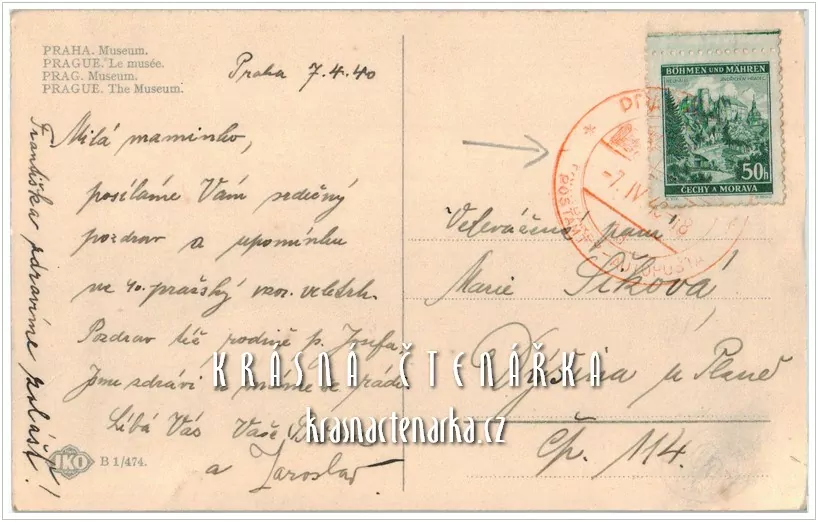 PRAHA. Museum.
PRAGUE. Le musée.
PRAG. Museum.
PRAGUE. The Museum.
Praha 7.4.40
Milá maminko,
posíláme Vám srdečný
pozdrav a upomínku
na 40. pražský vzor. veletrh.
Pozdrav též rodině p. Josefa,
Jsme zdrávi a máme se rádi
Líbá Vás Vaše
a Jaroslav
Františka zdravíme zvlášť!
IKO
B 1/474.
BÖHMEN UND MÄHREN
50h
ČECHY A MORAVA
-7. IV. 40-18
AUTOPOŠTA
Velevážená paní
Marie Šíková
Dýšina u Plzně
Čp. 114.
KRÁSNÁ ČTENÁŘKA
krasnactenarka.cz